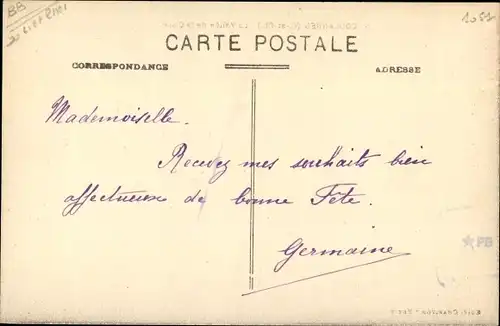 BB
CARTE POSTALE
CORRESPONDANCE
ADRESSE
Mademoiselle.
Recevez mes souhaits bien
affectueux de bonne Fête.
Germaine
PB